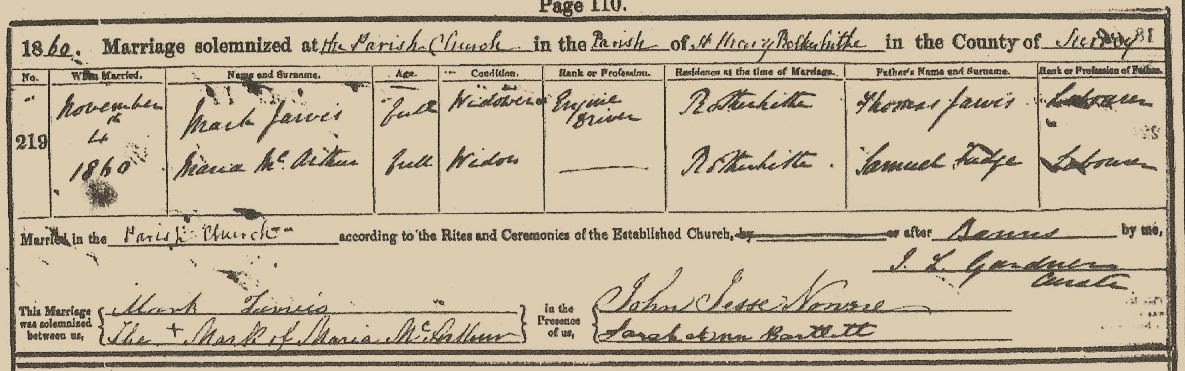 Page 110.
1860. Marriage solemnized at the Parish Church in the Parish of St Mary Rotherhithe in the County of Surrey
No. When Married. Name and Surname. Age. Condition. Rank or Profession. Residence at the time of Marriage. Father's Name and Surname. Rank or Profession of Father.
219 November 4th 1860 Mark Jarvis Full Widower Engine Driver Rotherhithe Thomas Jarvis Labourer
Maria McArthur Full Widow — Rotherhithe Samuel Fudge Labourer
Married in the Parish Church according to the Rites and Ceremonies of the Established Church, by or after Banns by me,
J. L. Gardner
Curate
This Marriage was solemnized between us, Mark Jarvis
The + Mark of Maria McArthur
in the Presence of us, John Jesse
Sarah Ann Bartlett